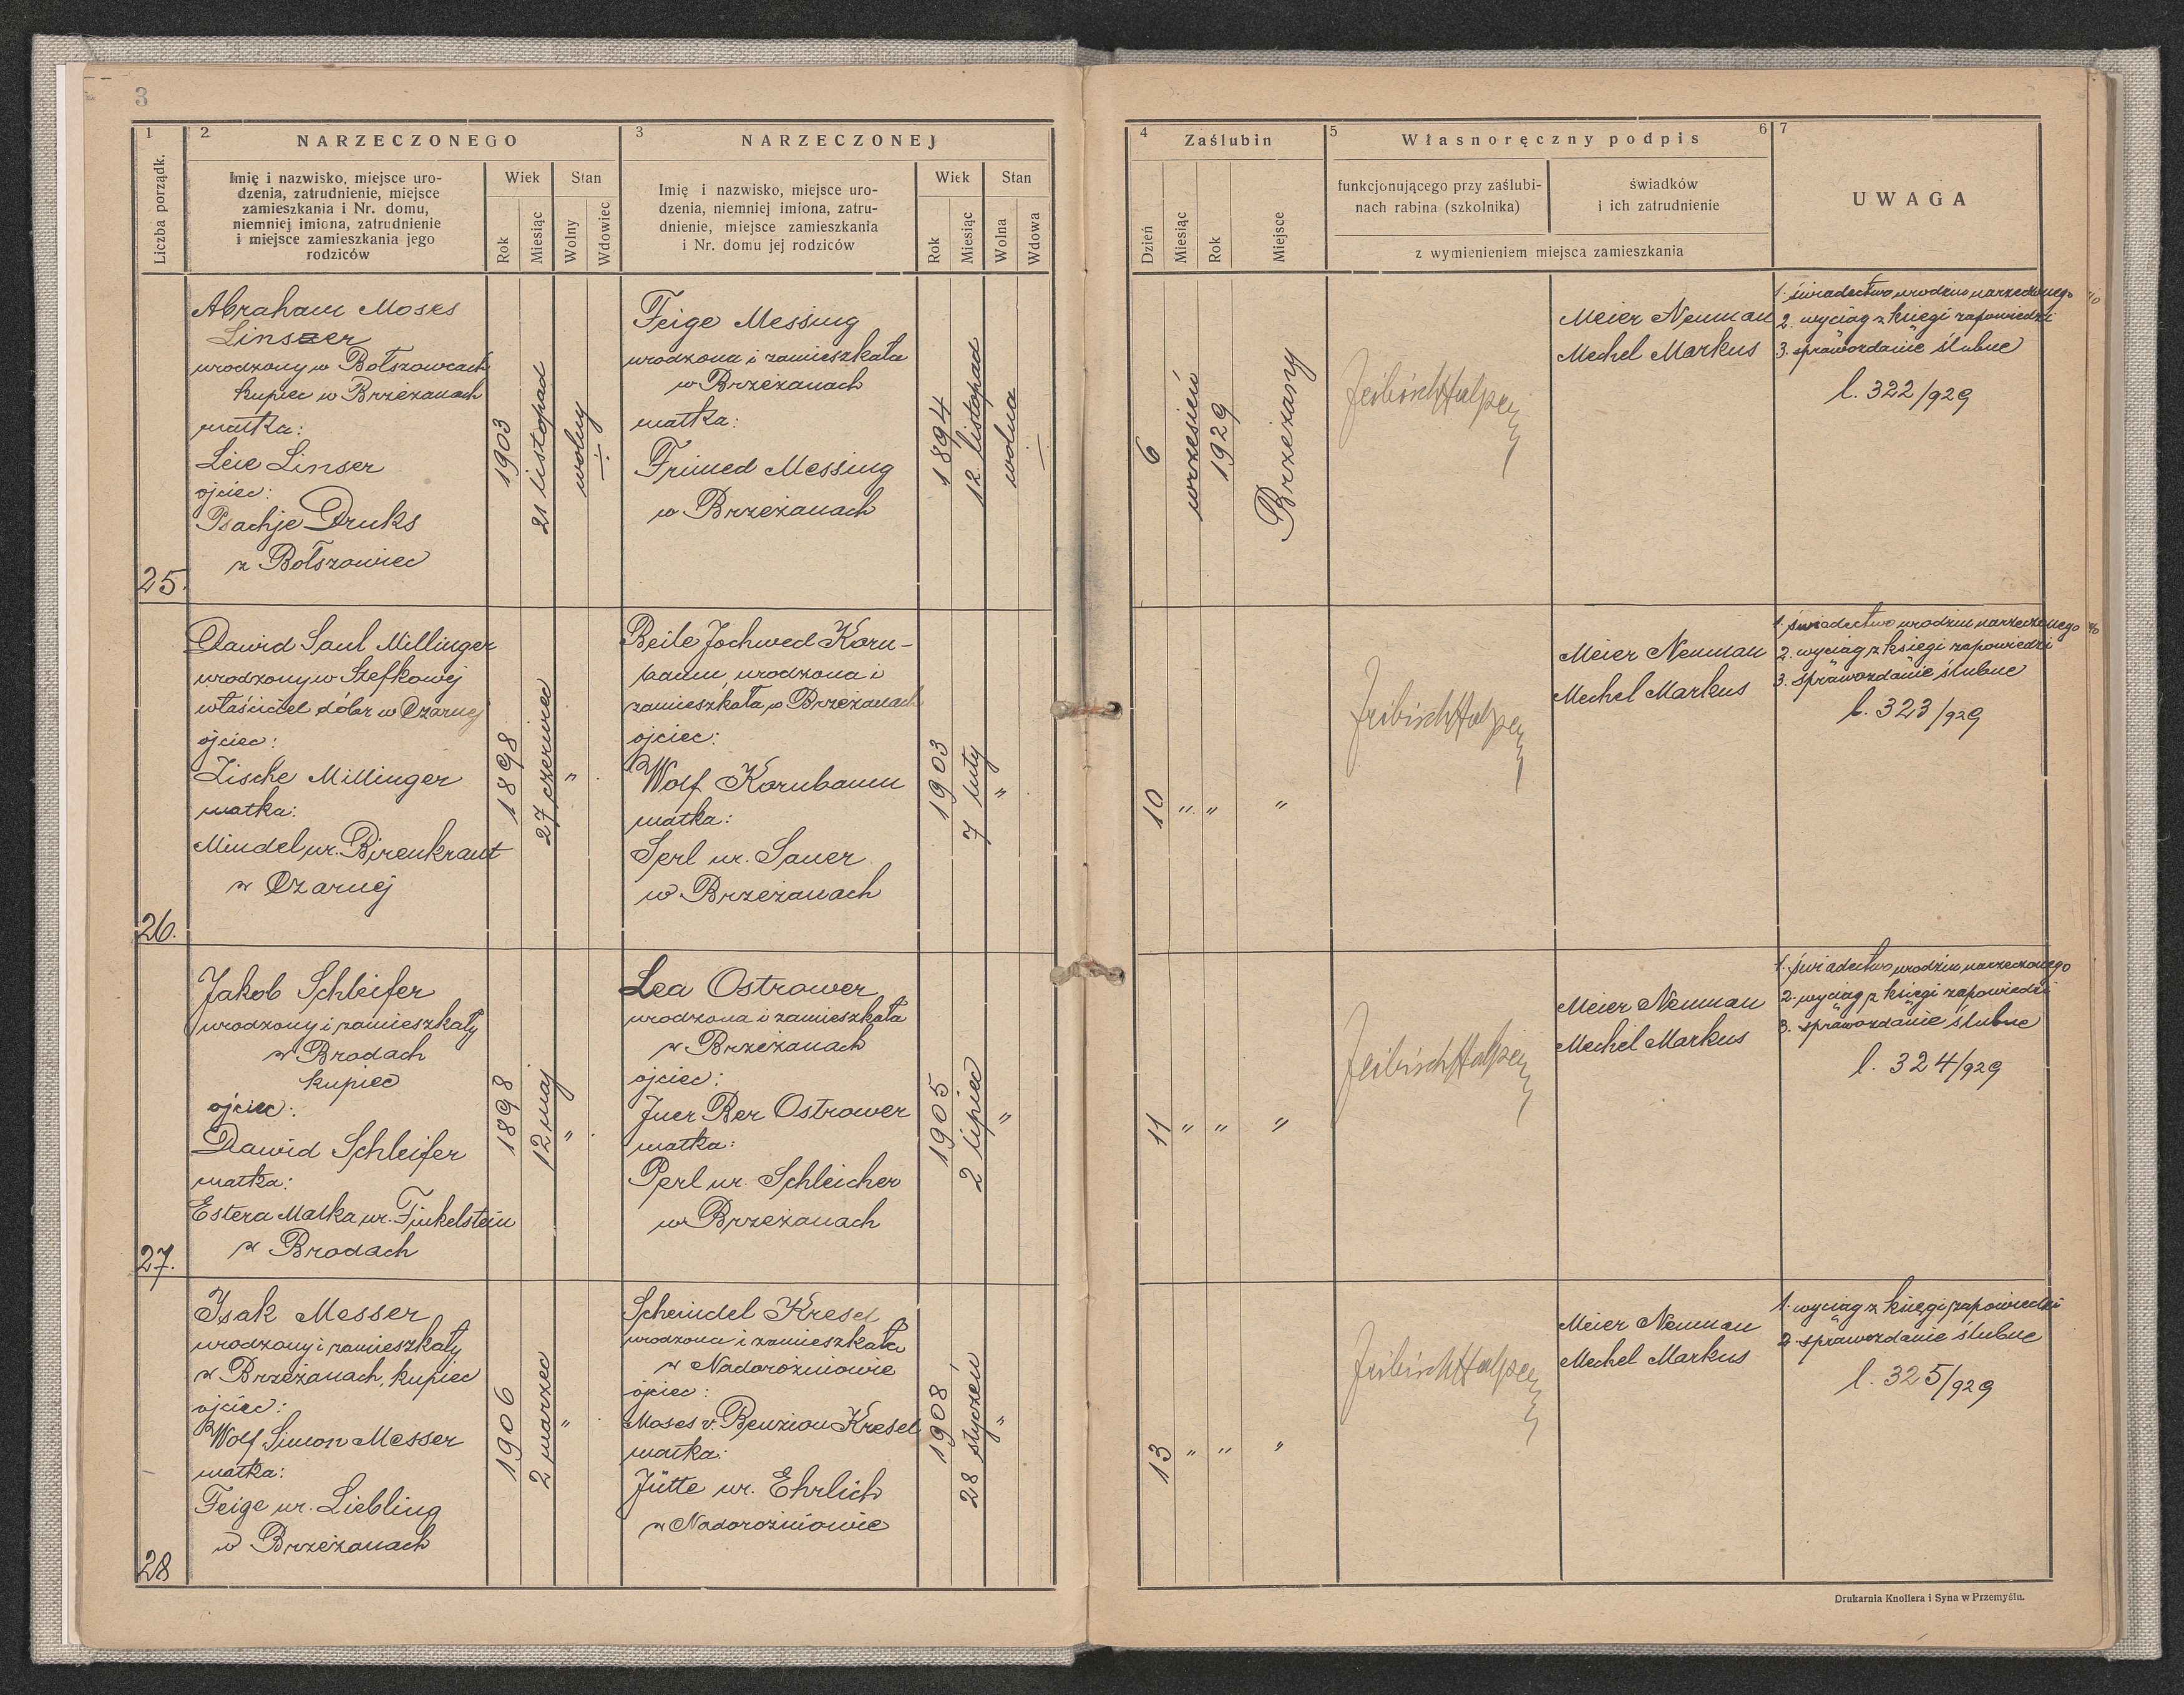 3
1
2
NARZECZONEGO
3
NARZECZONEJ
Liczba porządk.
Imię i nazwisko, miejsce uro-
dzenia, zatrudnienie, miejsce
zamieszkania i Nr. domu,
niemniej imiona, zatrudnienie
i miejsce zamieszkania jego
rodziców
Wiek
Stan
Rok
Miesiąc
Wolny
Wdowiec
Imię i nazwisko, miejsce uro-
dzenia, niemniej imiona, zatru-
dnienie, miejsce zamieszkanta
i Nr. domu jej rodziców
Wiek
Stan
Rok
Miesiąc
Wolna
Wdowa
4
Zaślubin
5
Własnoręczny podpis
6
7
Dzień
Miesiąc
Rok
Miejsce
funkcjonującego przy zaślubi-
nach rabina (szkolnika)
świadków
i ich zatrudnienie
z wymienieniem miejsca zamieszkania
UWAGA
25.
Abraham Moses
Linser
urodzony w Bołszowcach
kupiec w Brzeżanach
matka:
Leie Linser
ojciec:
Psachje Druks
z Bołszowiec
1903
21 listopad
wolny
Feige Messing
urodzona i zamieszkała
w Brzeżanach
matka:
Frimed Messing
w Brzeżanach
1894
12 listopad
wolna
6
wrzesień
1929
Brzeżany
Meier Neuman
Mechel Markus
1. świadectwo urodzin narzeczonego
2. wyciąg z księgi zapowiedzi
3. sprawozdanie ślubne
l. 322/929
26.
Dawid Saul Millinger
urodzony w Stefkowej
właściciel dóbr w Czarnej
ojciec:
Zische Millinger
matka:
Mindel ur. Birenkraut
w Czarnej
1898
27 czerwiec
"
Beile Jochwed Korn-
baum, urodzona i
zamieszkała w Brzeżanach
ojciec:
Wolf Kornbaum
matka:
Serl ur. Sauer
w Brzeżanach
1903
7 luty
"
10
"
"
"
Meier Neuman
Mechel Markus
1. świadectwo urodzin narzeczonego
2. wyciąg z księgi zapowiedzi
3. sprawozdanie ślubne
l. 323/929
27.
Jakob Schleifer
urodzony i zamieszkały
w Brodach
kupiec
ojciec:
Dawid Schleifer
matka:
Estera Malka ur. Finkelstein
w Brodach
1898
12 maj
"
Lea Ostrower
urodzona i zamieszkała
w Brzeżanach
ojciec:
Juer Ber Ostrower
matka:
Perl ur. Schleicher
w Brzeżanach
1905
2 lipiec
"
11
"
"
"
Meier Neuman
Mechel Markus
1. świadectwo urodzin narzeczonego
2. wyciąg z księgi zapowiedzi
3. sprawozdanie ślubne
l. 324/929
28
Isak Messer
urodzony i zamieszkały
w Brzeżanach, kupiec
ojciec:
Wolf Simon Messer
matka:
Feige ur. Liebling
w Brzeżanach
1906
2 marzec
"
Scheindel Kresel
urodzona i zamieszkała
w Nadorożniowie
ojciec:
Moses v. Benzion Kresel
matka:
Jütte ur. Ehrlich
w Nadorożniowie
1908
28 styczeń
"
13
"
"
"
Meier Neuman
Mechel Markus
1. wyciąg z księgi zapowiedzi
2. sprawozdanie ślubne
l. 325/929
Drukarnia Knollera i Syna w Przemyślu.